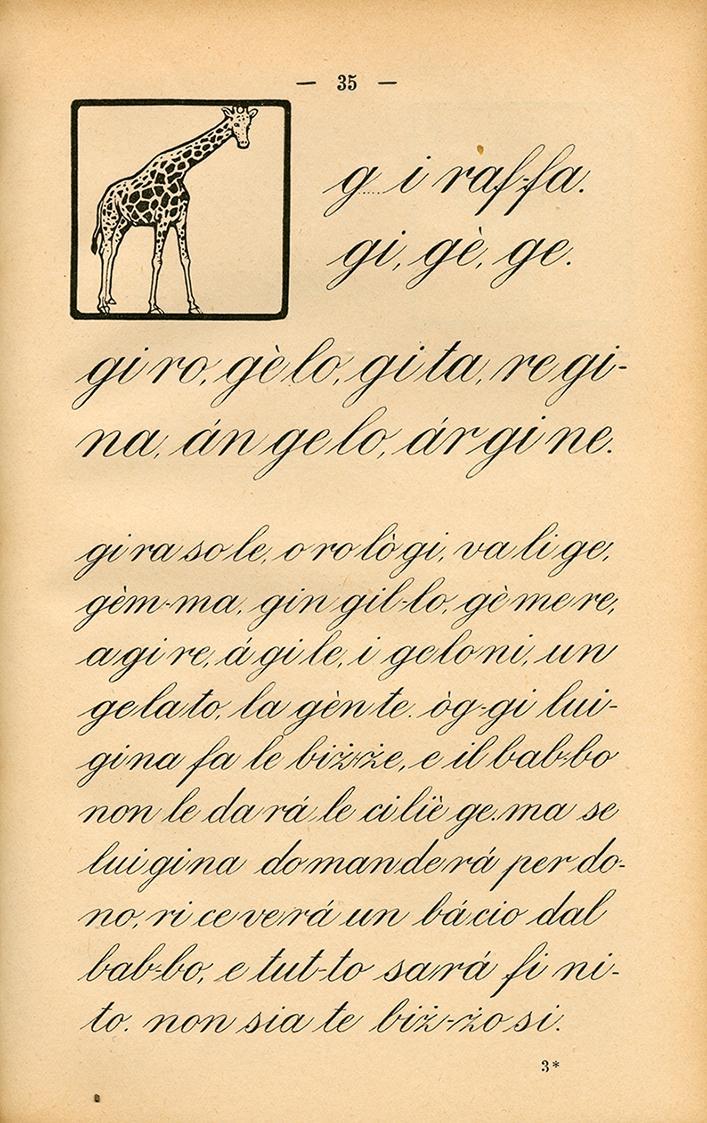 — 35 —
g i ràf-fa.
gi, gè, ge.
gi ro, gè lo, gi ta, re gi-
na, án ge lo, ár gi ne.
gi ra so le, o ro lò gi, va li ge,
gèm-ma, gin gil-lo, gè me re,
a gi re, á gi le, i ge lo ni, un
ge la to, la gèn te. òg-gi lui-
gi na fa le biż-że, e il bab-bo
non le da rá le ci liè ge. ma se
lui gi na do man de rá per do-
no, ri ce ve rá un bá cio dal
bab-bo, e tut-to sa rá fi ni-
to. non sia te biż-żo si.
3*